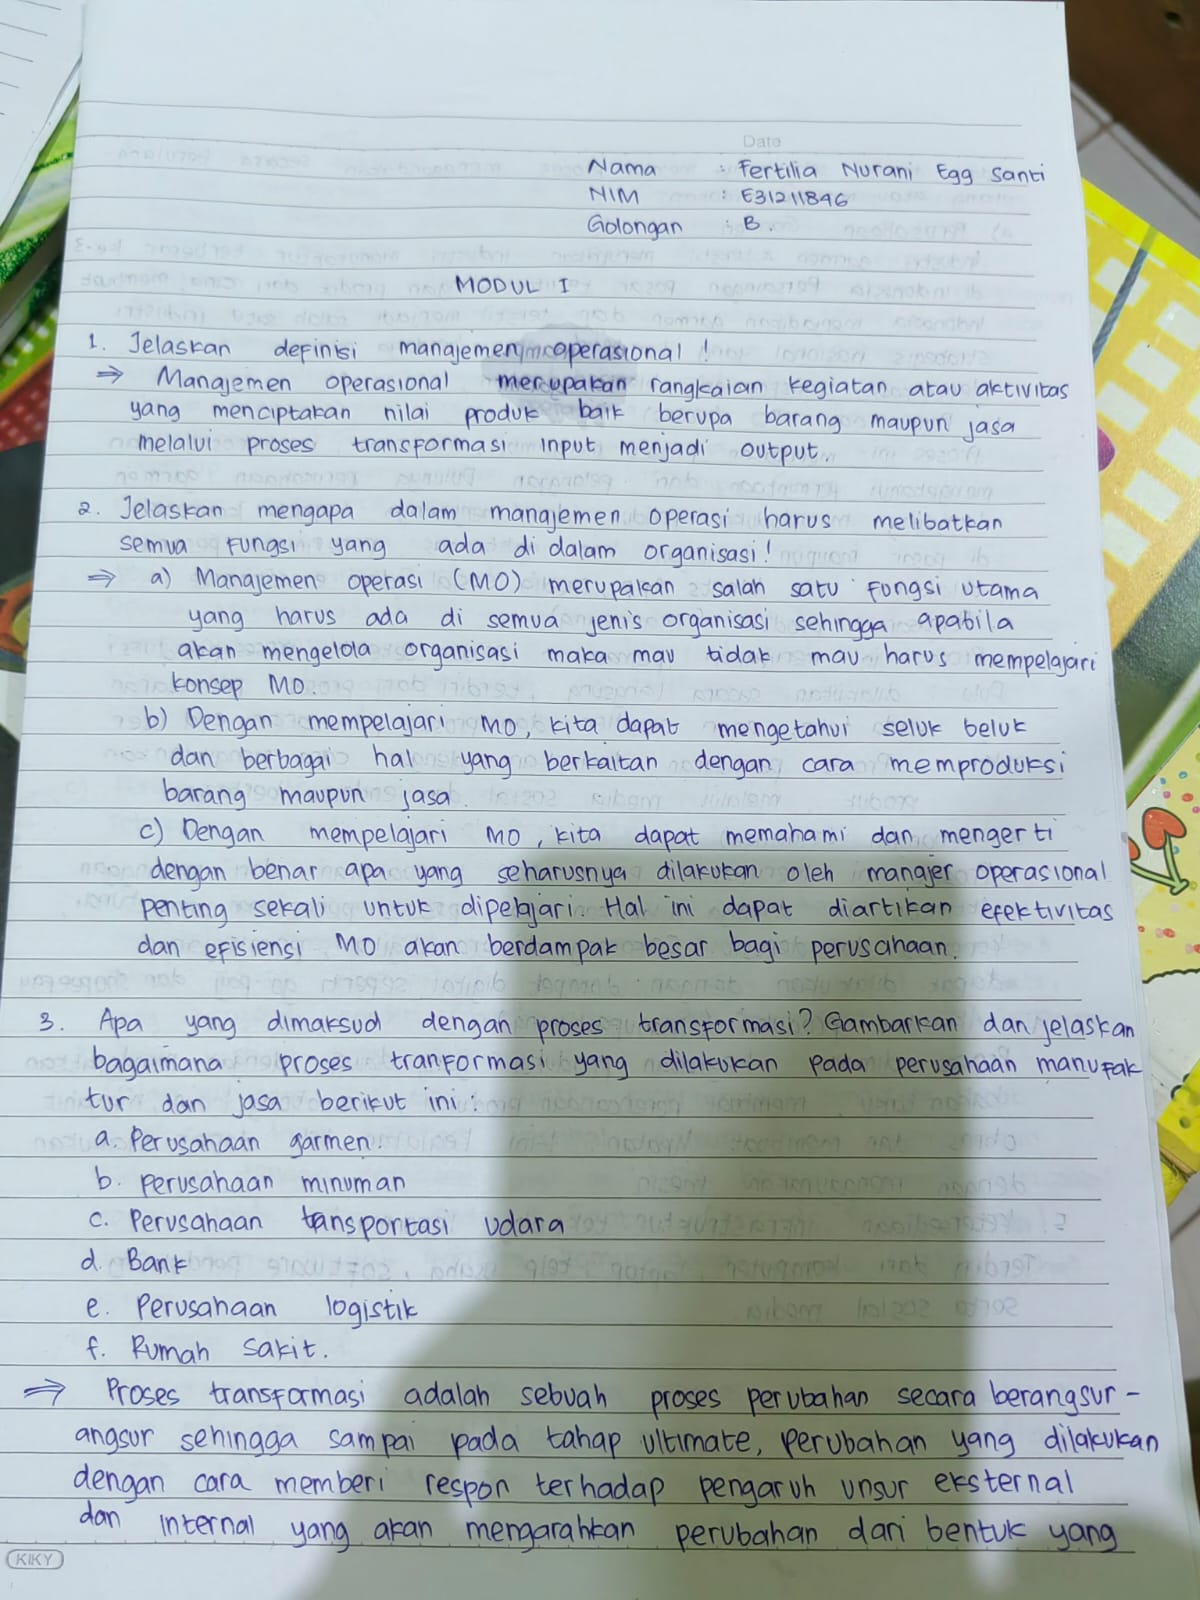 Date
Nama : Fertilia Nurani Egg Santi
NIM : E31211846
Golongan : B.
MODUL I
1. Jelaskan definisi manajemen operasional !
⇒ Manajemen operasional merupakan rangkaian kegiatan atau aktivitas
yang menciptakan nilai produk baik berupa barang maupun jasa
melalui proses transformasi input menjadi output.
2. Jelaskan mengapa dalam manajemen operasi harus melibatkan
semua fungsi yang ada di dalam organisasi!
⇒ a) Manajemen operasi (MO) merupakan salah satu fungsi utama
yang harus ada di semua jenis organisasi sehingga apabila
akan mengelola organisasi maka mau tidak mau harus mempelajari
konsep MO.
b) Dengan mempelajari MO, kita dapat mengetahui seluk beluk
dan berbagai hal yang berkaitan dengan cara memproduksi
barang maupun jasa.
c) Dengan mempelajari MO, kita dapat memahami dan mengerti
dengan benar apa yang seharusnya dilakukan oleh manajer operasional
penting sekali untuk dipelajari. Hal ini dapat diartikan efektivitas
dan efisiensi MO akan berdampak besar bagi perusahaan.
3. Apa yang dimaksud dengan proses transformasi? Gambarkan dan jelaskan
bagaimana proses tranformasi yang dilakukan pada perusahaan manufak
tur dan jasa berikut ini :
a. Perusahaan garmen.
b. Perusahaan minuman
c. Perusahaan tansportasi udara
d. Bank
e. Perusahaan logistik
f. Rumah sakit.
⇒ Proses transformasi adalah sebuah proses perubahan secara berangsur-
angsur sehingga sampai pada tahap ultimate, perubahan yang dilakukan
dengan cara memberi respon terhadap pengaruh unsur eksternal
dan internal yang akan mengarahkan perubahan dari bentuk yang
KIKY